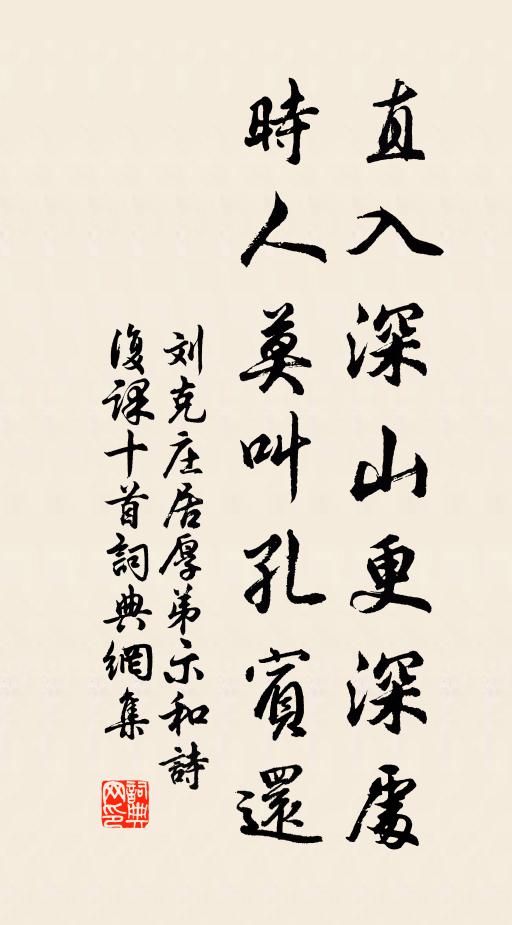 直入深山更深處
時人莫叫孔賓還
刘克庄居厚弟示和詩
復課十首詞典網集
詞典
网印